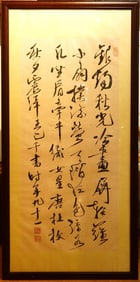 銀燭秋光冷畫屏輕羅
小扇撲流螢天階夜色涼如
水坐看牽牛織女星唐杜牧
秋夕震澤王己千書時年九十一